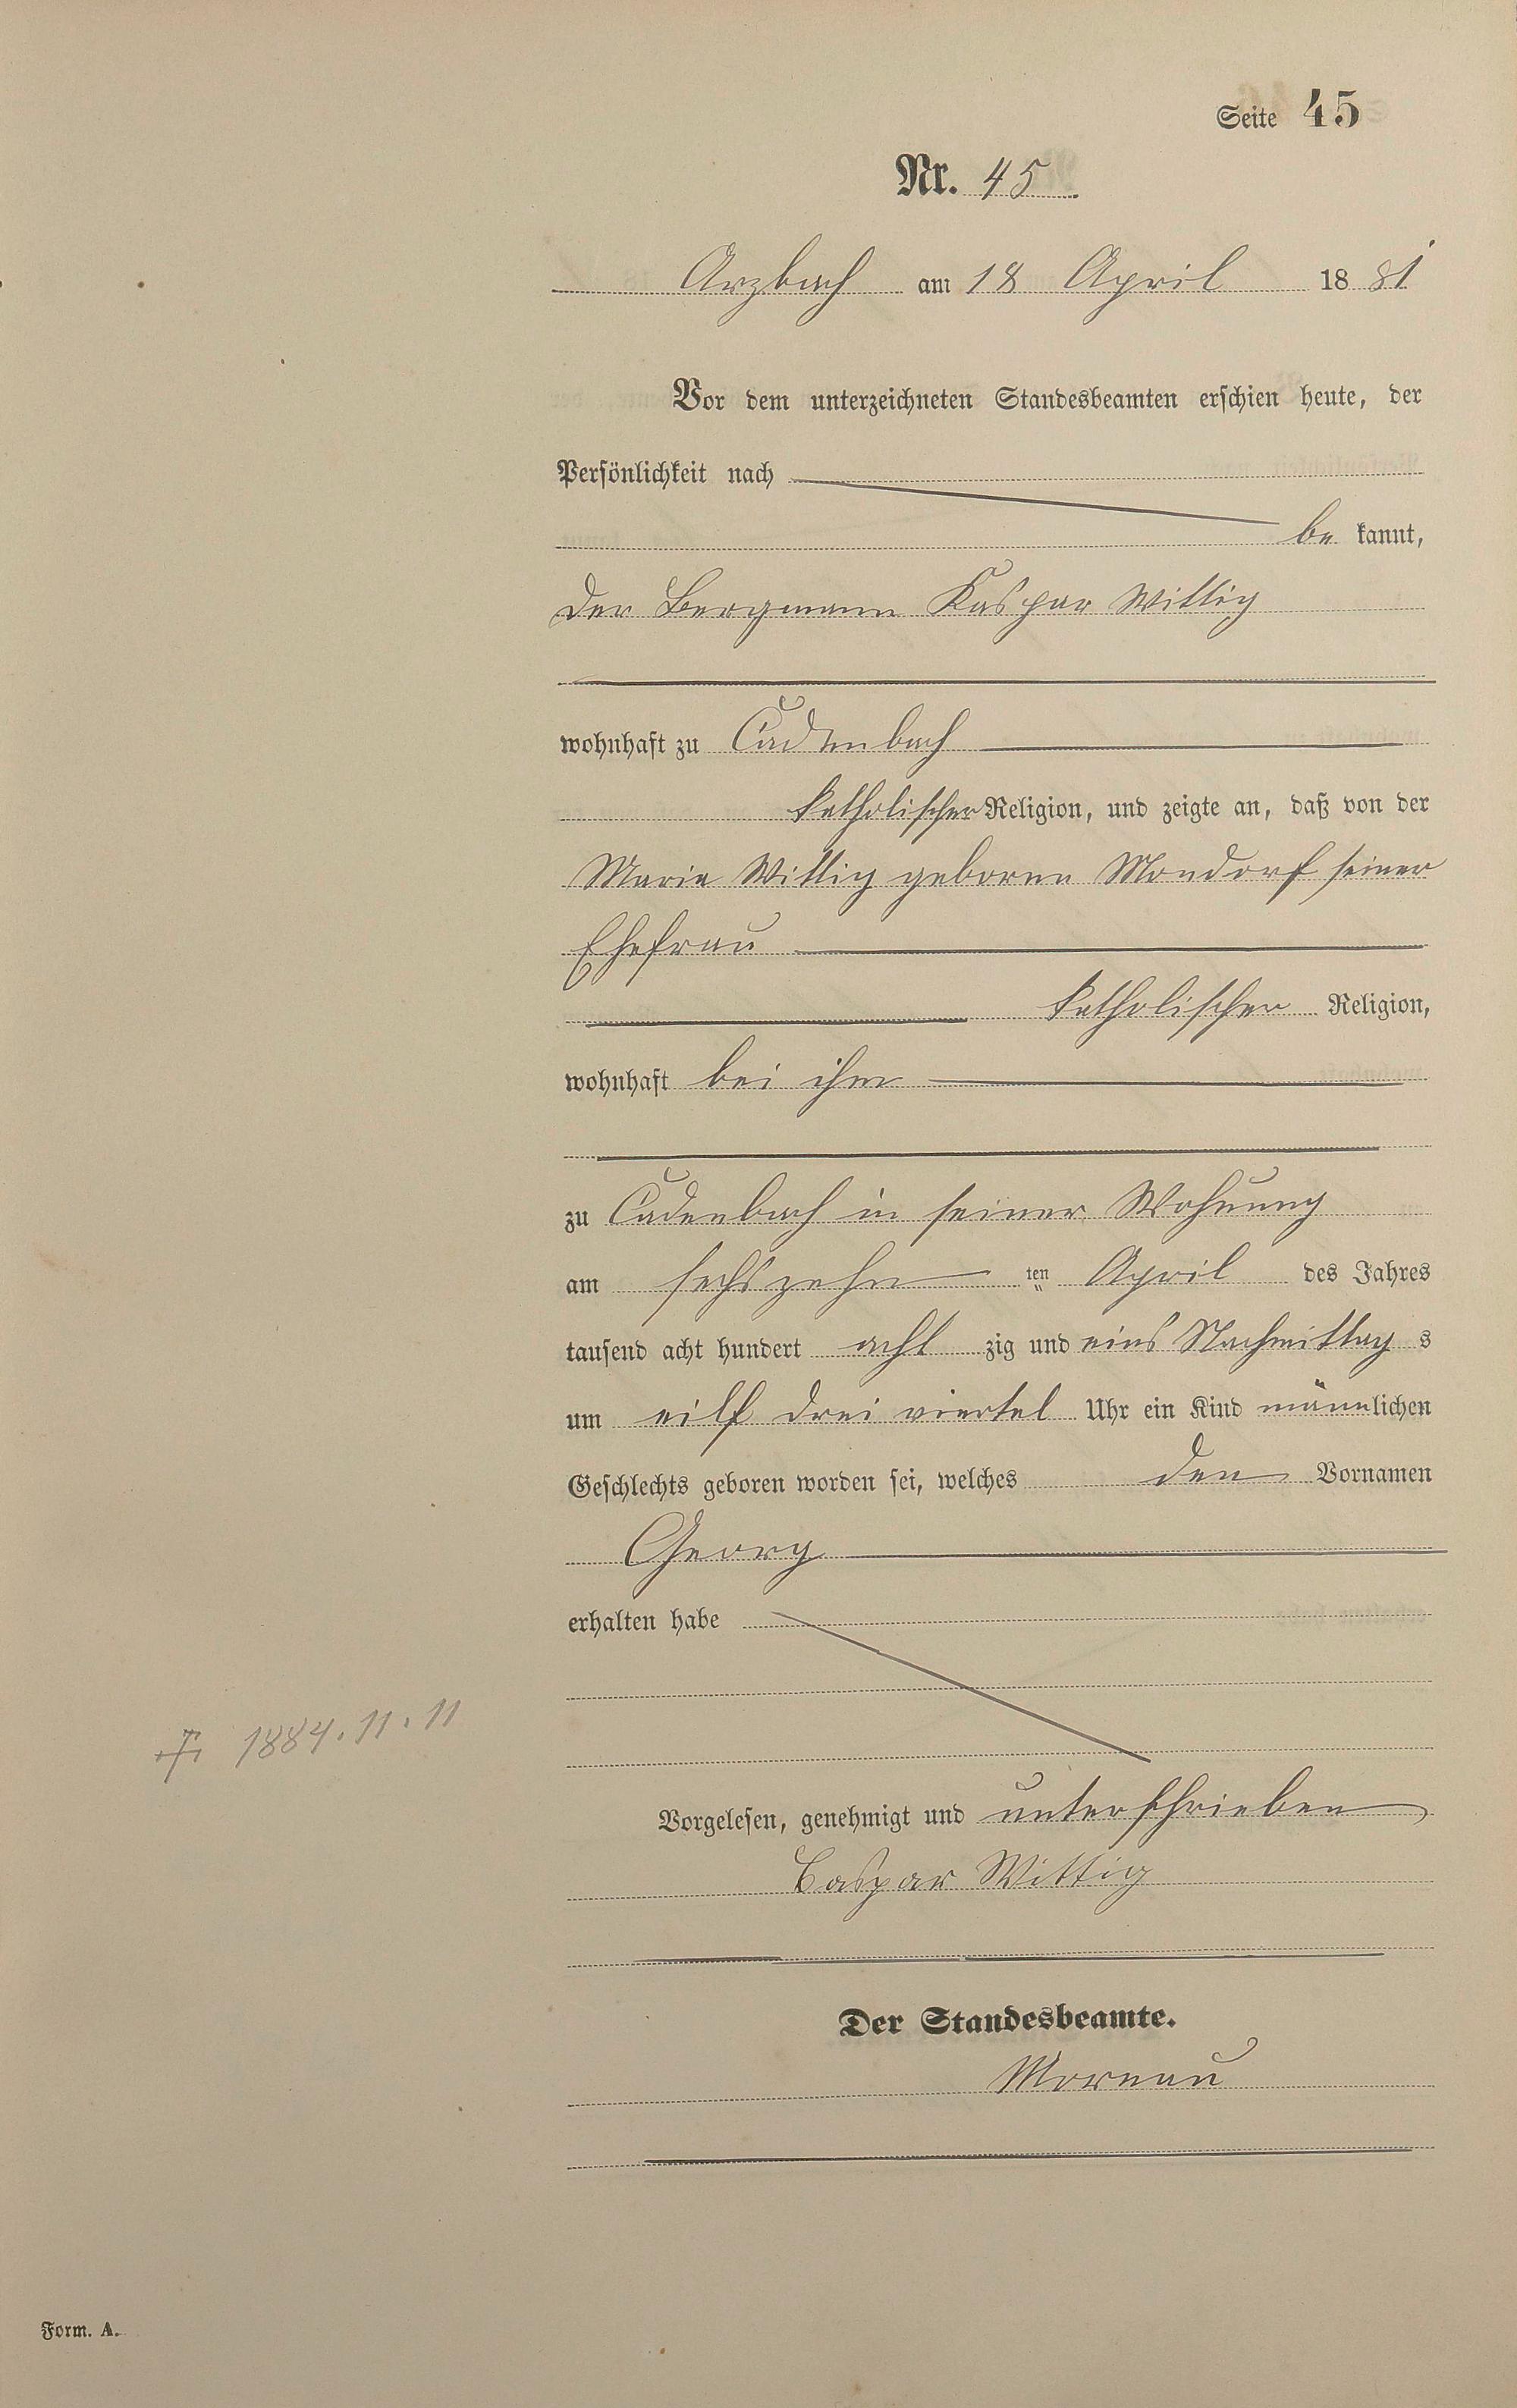 Seite 45
Nr. 45
Arzbach am 18 April 1881
Vor dem unterzeichneten Standesbeamten erschien heute, der
Persönlichkeit nach
be kannt,
der Bergmann Kaspar Wittig
wohnhaft zu Cadenbach
katholischer Religion, und zeigte an, daß von der
Maria Wittig geborne Mondorf seiner
Ehefrau
katholischer Religion,
wohnhaft bei ihm
zu Cadenbach in seiner Wohnung
am sechszehn ten April des Jahres
tausend acht hundert acht zig und eins Nachmittag s
um eilf drei viertel Uhr ein Kind männlichen
Geschlechts geboren worden sei, welches den Vornamen
Georg
erhalten habe
† 1884.11.11
Vorgelesen, genehmigt und unterschrieben
Caspar Wittig
Der Standesbeamte.
Moreau
Form. A.